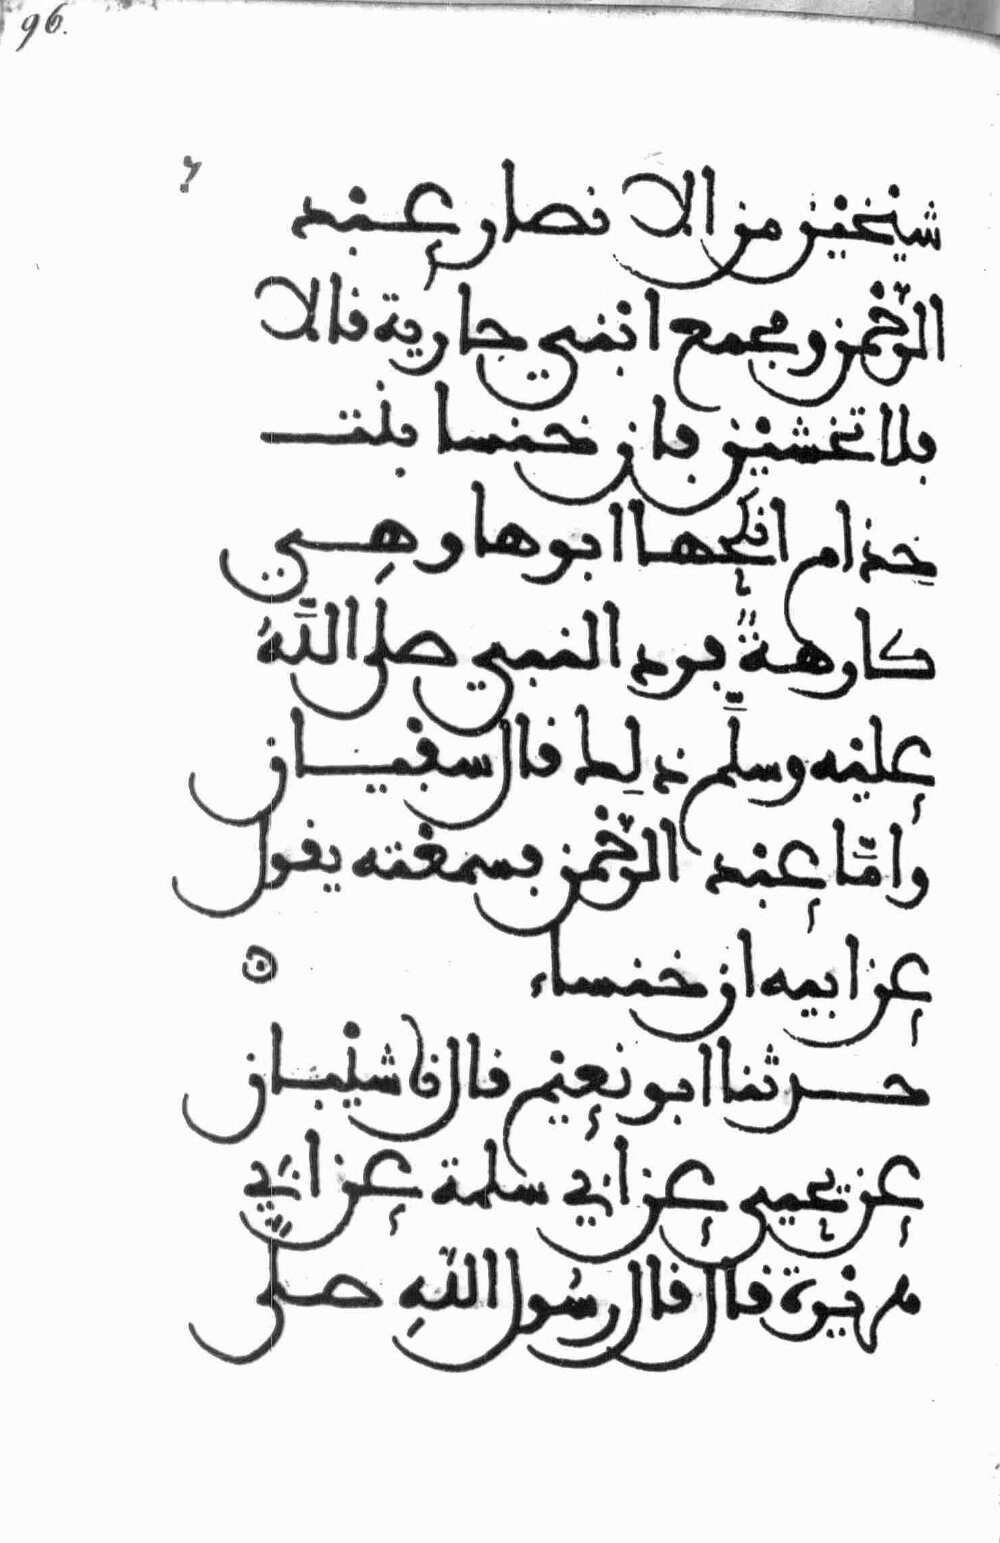 96.
شيخين من الانصار عبد
الرحمن ومجمع ابني جارية قالا
فلا تخشين فان خنسا بنت
خذام انكحها ابوها وهي
كارهة فرد النبي صلى اللَّهُ
عليه وسلَّم ذلِك قال سفيان
وامَّا عبد الرحمن فسمعته يقول
عن ابيه ان خنساء
حدثنا ابو نعيم قال نا شيبان
عن يحيى عن ابي سلمة عن ابي
هريرة قال قال رسُول اللهِ صلى